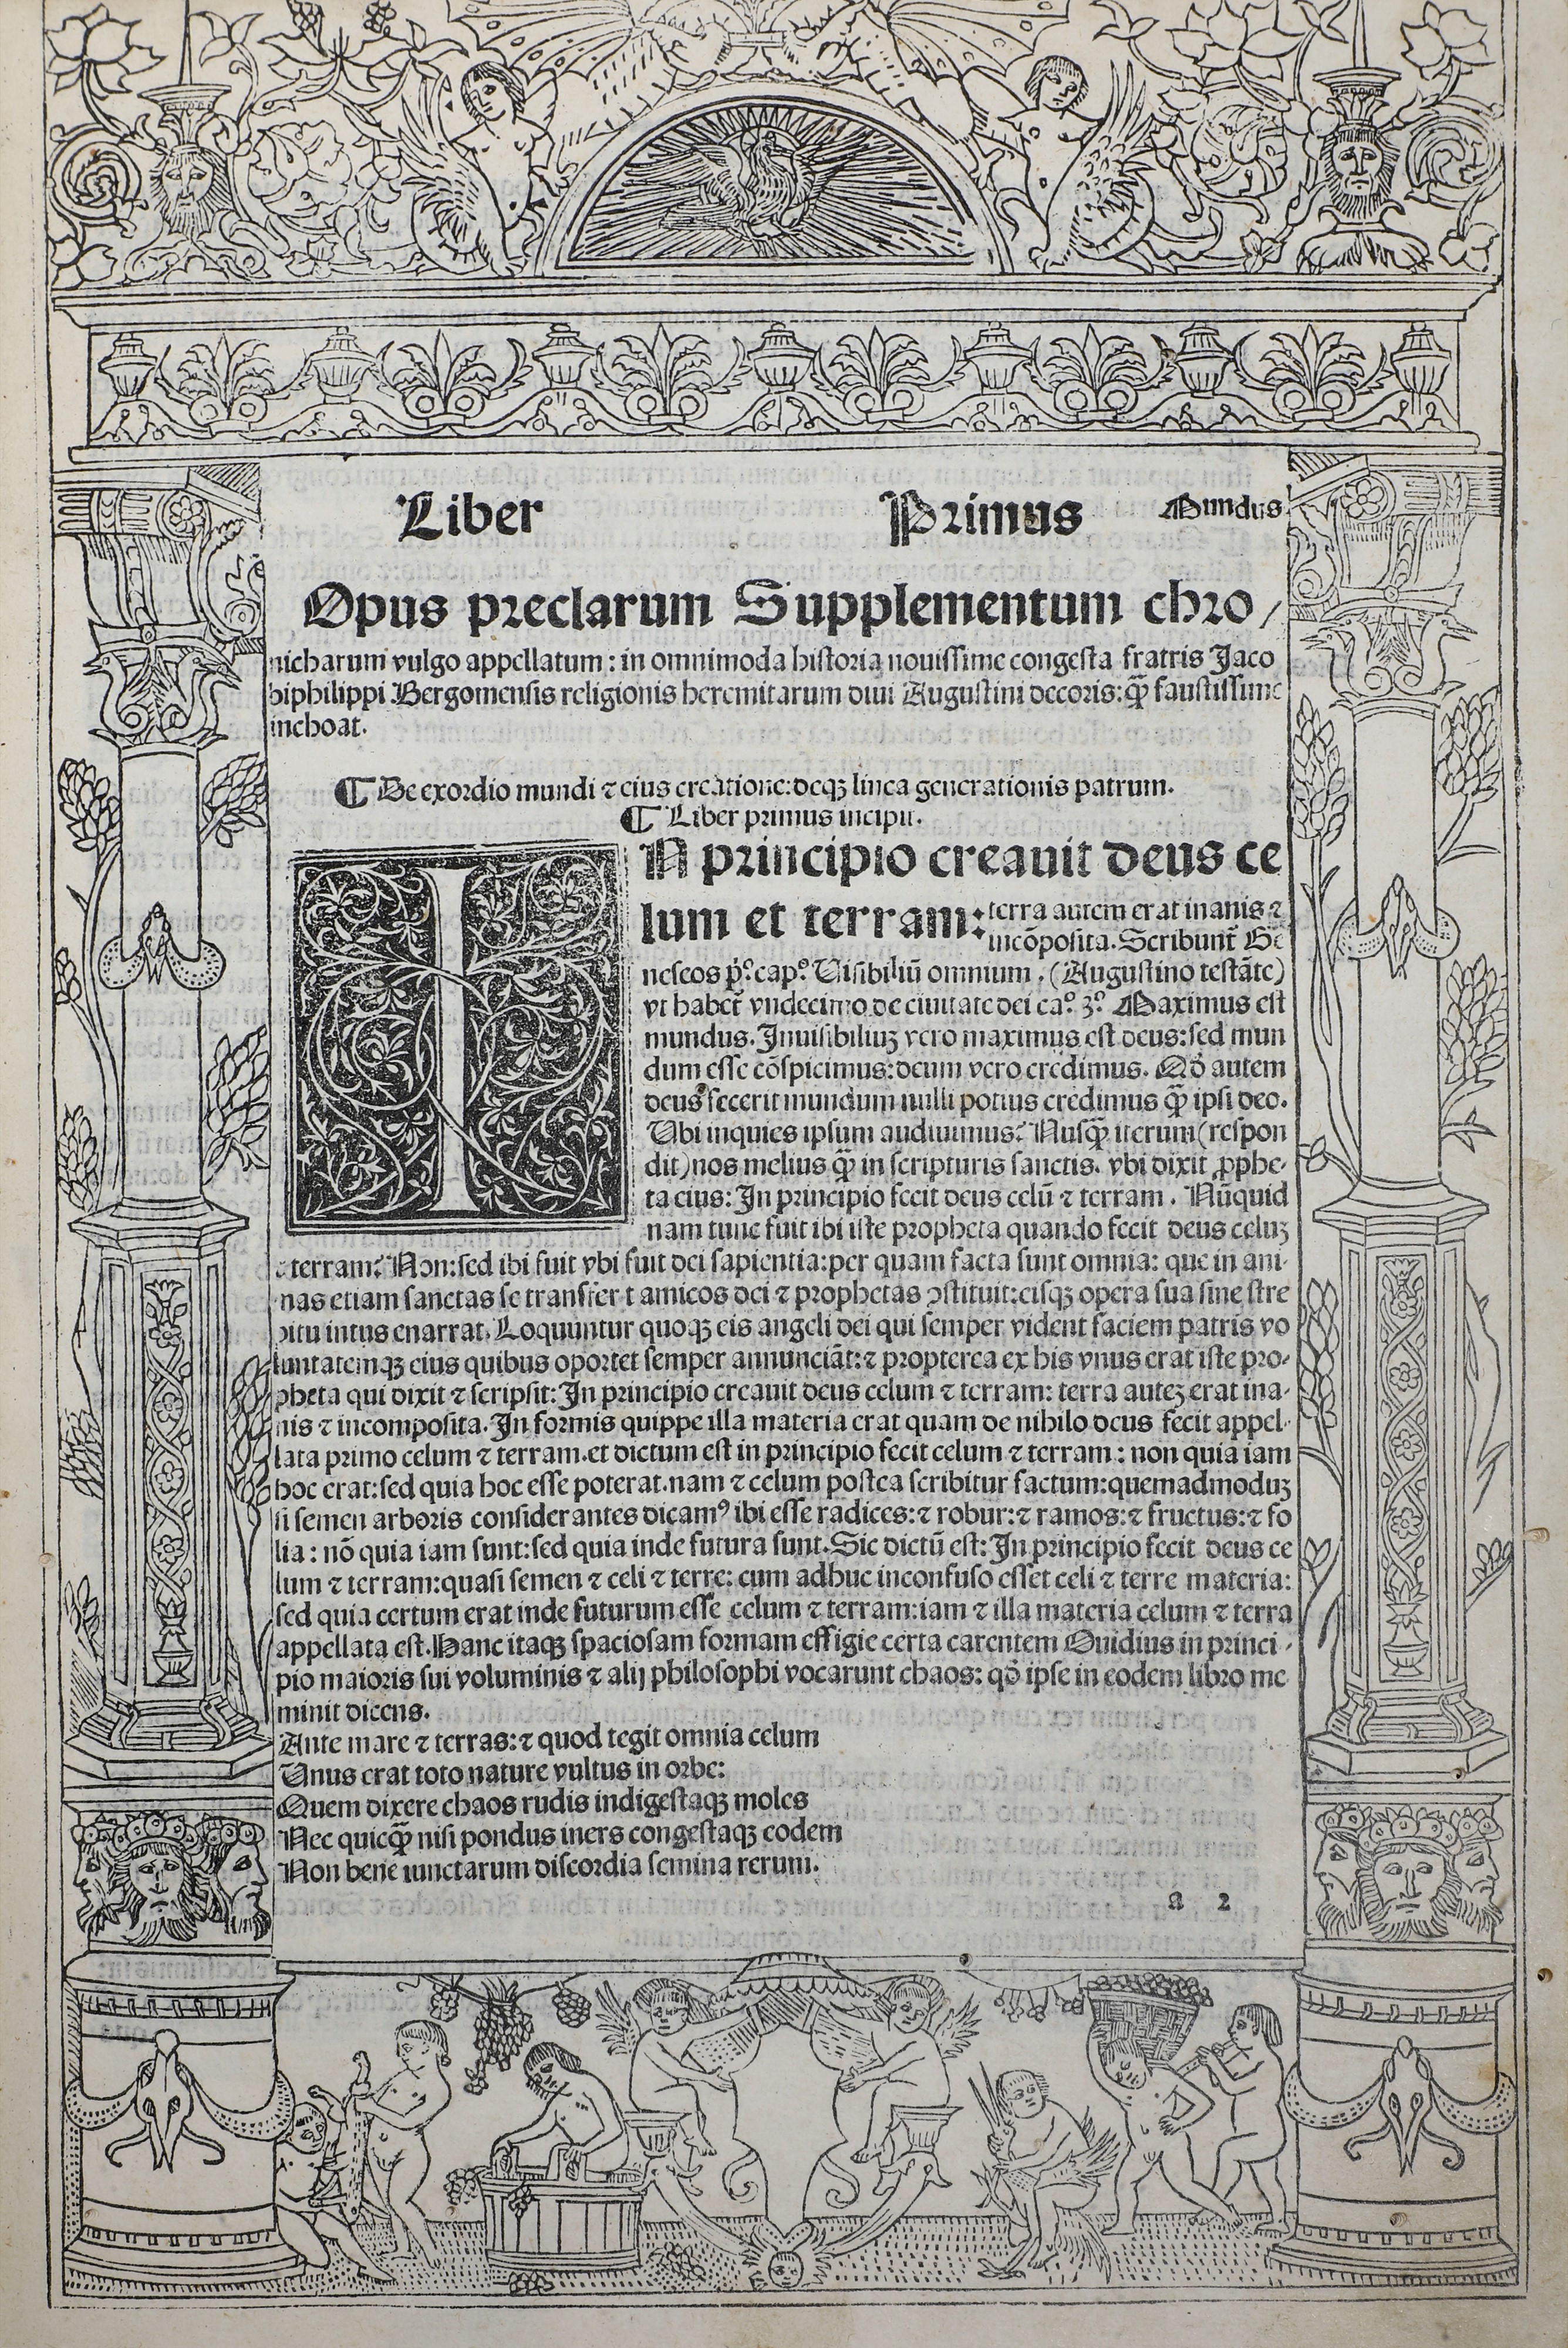 Liber Primus Mundus
Opus preclarum Supplementum chro/
nicharum vulgo appellatum: in omnimoda historia nouissime congesta fratris Jaco
biphilippi Bergomensis religionis heremitarum diui Augustini decoris: qꝫ̃ faustissime
inchoat.
¶ De exordio mundi ⁊ eius creatione: deqꝫ linea generationis patrum.
¶ Liber primus incipit.
IN principio creauit deus ce
lum et terram: terra autem erat inanis ⁊
incōposita. Scribunt̄ Ge
neseos p̊.º cap.º Uisibiliū omnium. (Augustino testāte)
vt habet̄ vndecimo de ciuitate dei ca.º 3.º Maximus est
mundus. Inuisibiliuꝫ vero maximus est deus: sed mun
dum esse cōspicimus: deum vero credimus. Qd̓ autem
deus fecerit mundum nulli potius credimus qꝫ̃ ipsi deo.
Ubi inquies ipsum audiuimus? Nusqꝫ̃ iterum (respon
dit) nos melius qꝫ̃ in scripturis sanctis. vbi dixit ꝓphe-
ta eius: In principio fecit deus celū ⁊ terram. Nūquid
nam tunc fuit ibi iste propheta quando fecit deus celuꝫ
⁊ terram? Non: sed ibi fuit vbi fuit dei sapientia: per quam facta sunt omnia: que in ani-
mas etiam sanctas se transfert amicos dei ⁊ prophetas ꝯstituit: eisqꝫ opera sua sine stre
pitu intus enarrat. Loquuntur quoqꝫ eis angeli dei qui semper vident faciem patris vo
luntatemqꝫ eius quibus oportet semper annunciāt: ⁊ propterea ex his vnus erat iste pro-
pheta qui dixit ⁊ scripsit: In principio creauit deus celum ⁊ terram: terra auteꝫ erat ina-
nis ⁊ incomposita. In formis quippe illa materia erat quam de nihilo deus fecit appel-
lata primo celum ⁊ terram. et dictum est in principio fecit celum ⁊ terram: non quia iam
hoc erat: sed quia hoc esse poterat. nam ⁊ celum postea scribitur factum: quemadmoduꝫ
si semen arboris considerantes dicamꝰ ibi esse radices: ⁊ robur: ⁊ ramos: ⁊ fructus: ⁊ fo
lia: nō quia iam sunt: sed quia inde futura sunt. Sic dictū est: In principio fecit deus ce
lum ⁊ terram: quasi semen ⁊ celi ⁊ terre: cum adhuc inconfuso esset celi ⁊ terre materia:
sed quia certum erat inde futurum esse celum ⁊ terram: iam ⁊ illa materia celum ⁊ terra
appellata est. Hanc itaqꝫ spaciosam formam effigie certa carentem Ouidius in princi-
pio maioris sui voluminis ⁊ alij philosophi vocarunt chaos: qd̓ ipse in eodem libro me
minit dicens.
Ante mare ⁊ terras: ⁊ quod tegit omnia celum
Unus erat toto nature vultus in orbe:
Quem dixere chaos rudis indigestaqꝫ moles
Nec quicqꝫ̃ nisi pondus iners congestaqꝫ eodem
Non bene iunctarum discordia semina rerum.
a 2